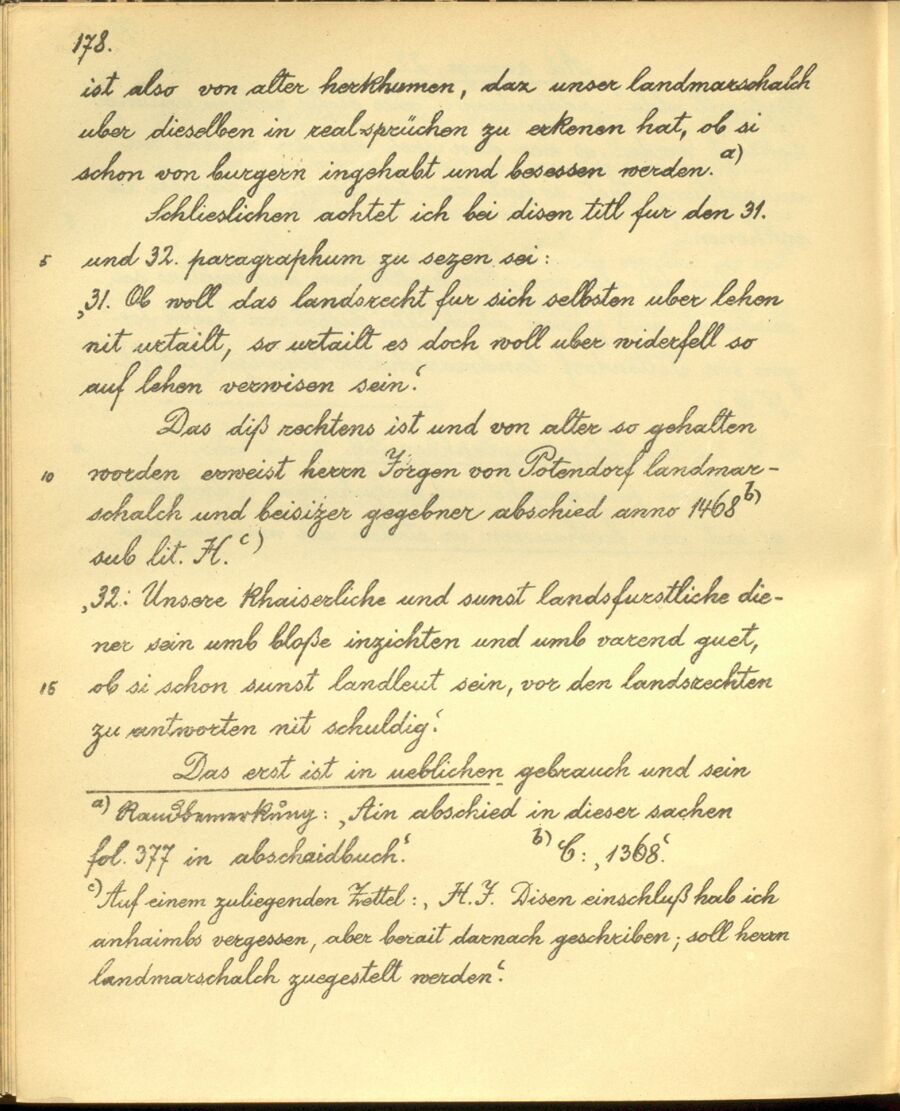 178.
ist also von alter herkhumen, daz unser landmarschalch
uber dieselben in real-sprüchen zu erkenen hat, ob si
schon von burgern ingehabt und besessen werden. a)
Schlieslichen achtet ich bei disen titl fur den 31.
5 und 32. paragraphum zu sezen sei:
‚31. Ob woll das landsrecht fur sich selbsten uber lehen
nit urtailt, so urtailt es doch woll uber widerfell so
auf lehen verwisen sein.‘
Das diß rechtens ist und von alter so gehalten
10 worden erweist herrn Jörgen von Potendorf landmar-
schalch und beisizer gegebner abschied anno 1468 b)
sub lit. H. c)
‚32: Unsere khaiserliche und sunst landsfurstliche die-
ner sein umb bloße inzichten und umb varend guet,
15 ob si schon sunst landleut sein, vor den landsrechten
zu antworten nit schuldig.‘
Das erst ist in ueblichen gebrauch und sein
a) Randbemerkung: ‚Ain abschied in dieser sachen
fol. 377 in abschaidbuch.‘ b) C: ‚1368.‘
c) Auf einem zuliegenden Zettel: ‚H. J. Disen einschluß hab ich
anhaimbs vergessen, aber berait darnach geschriben; soll herrn
landmarschalch zuegestelt werden.‘